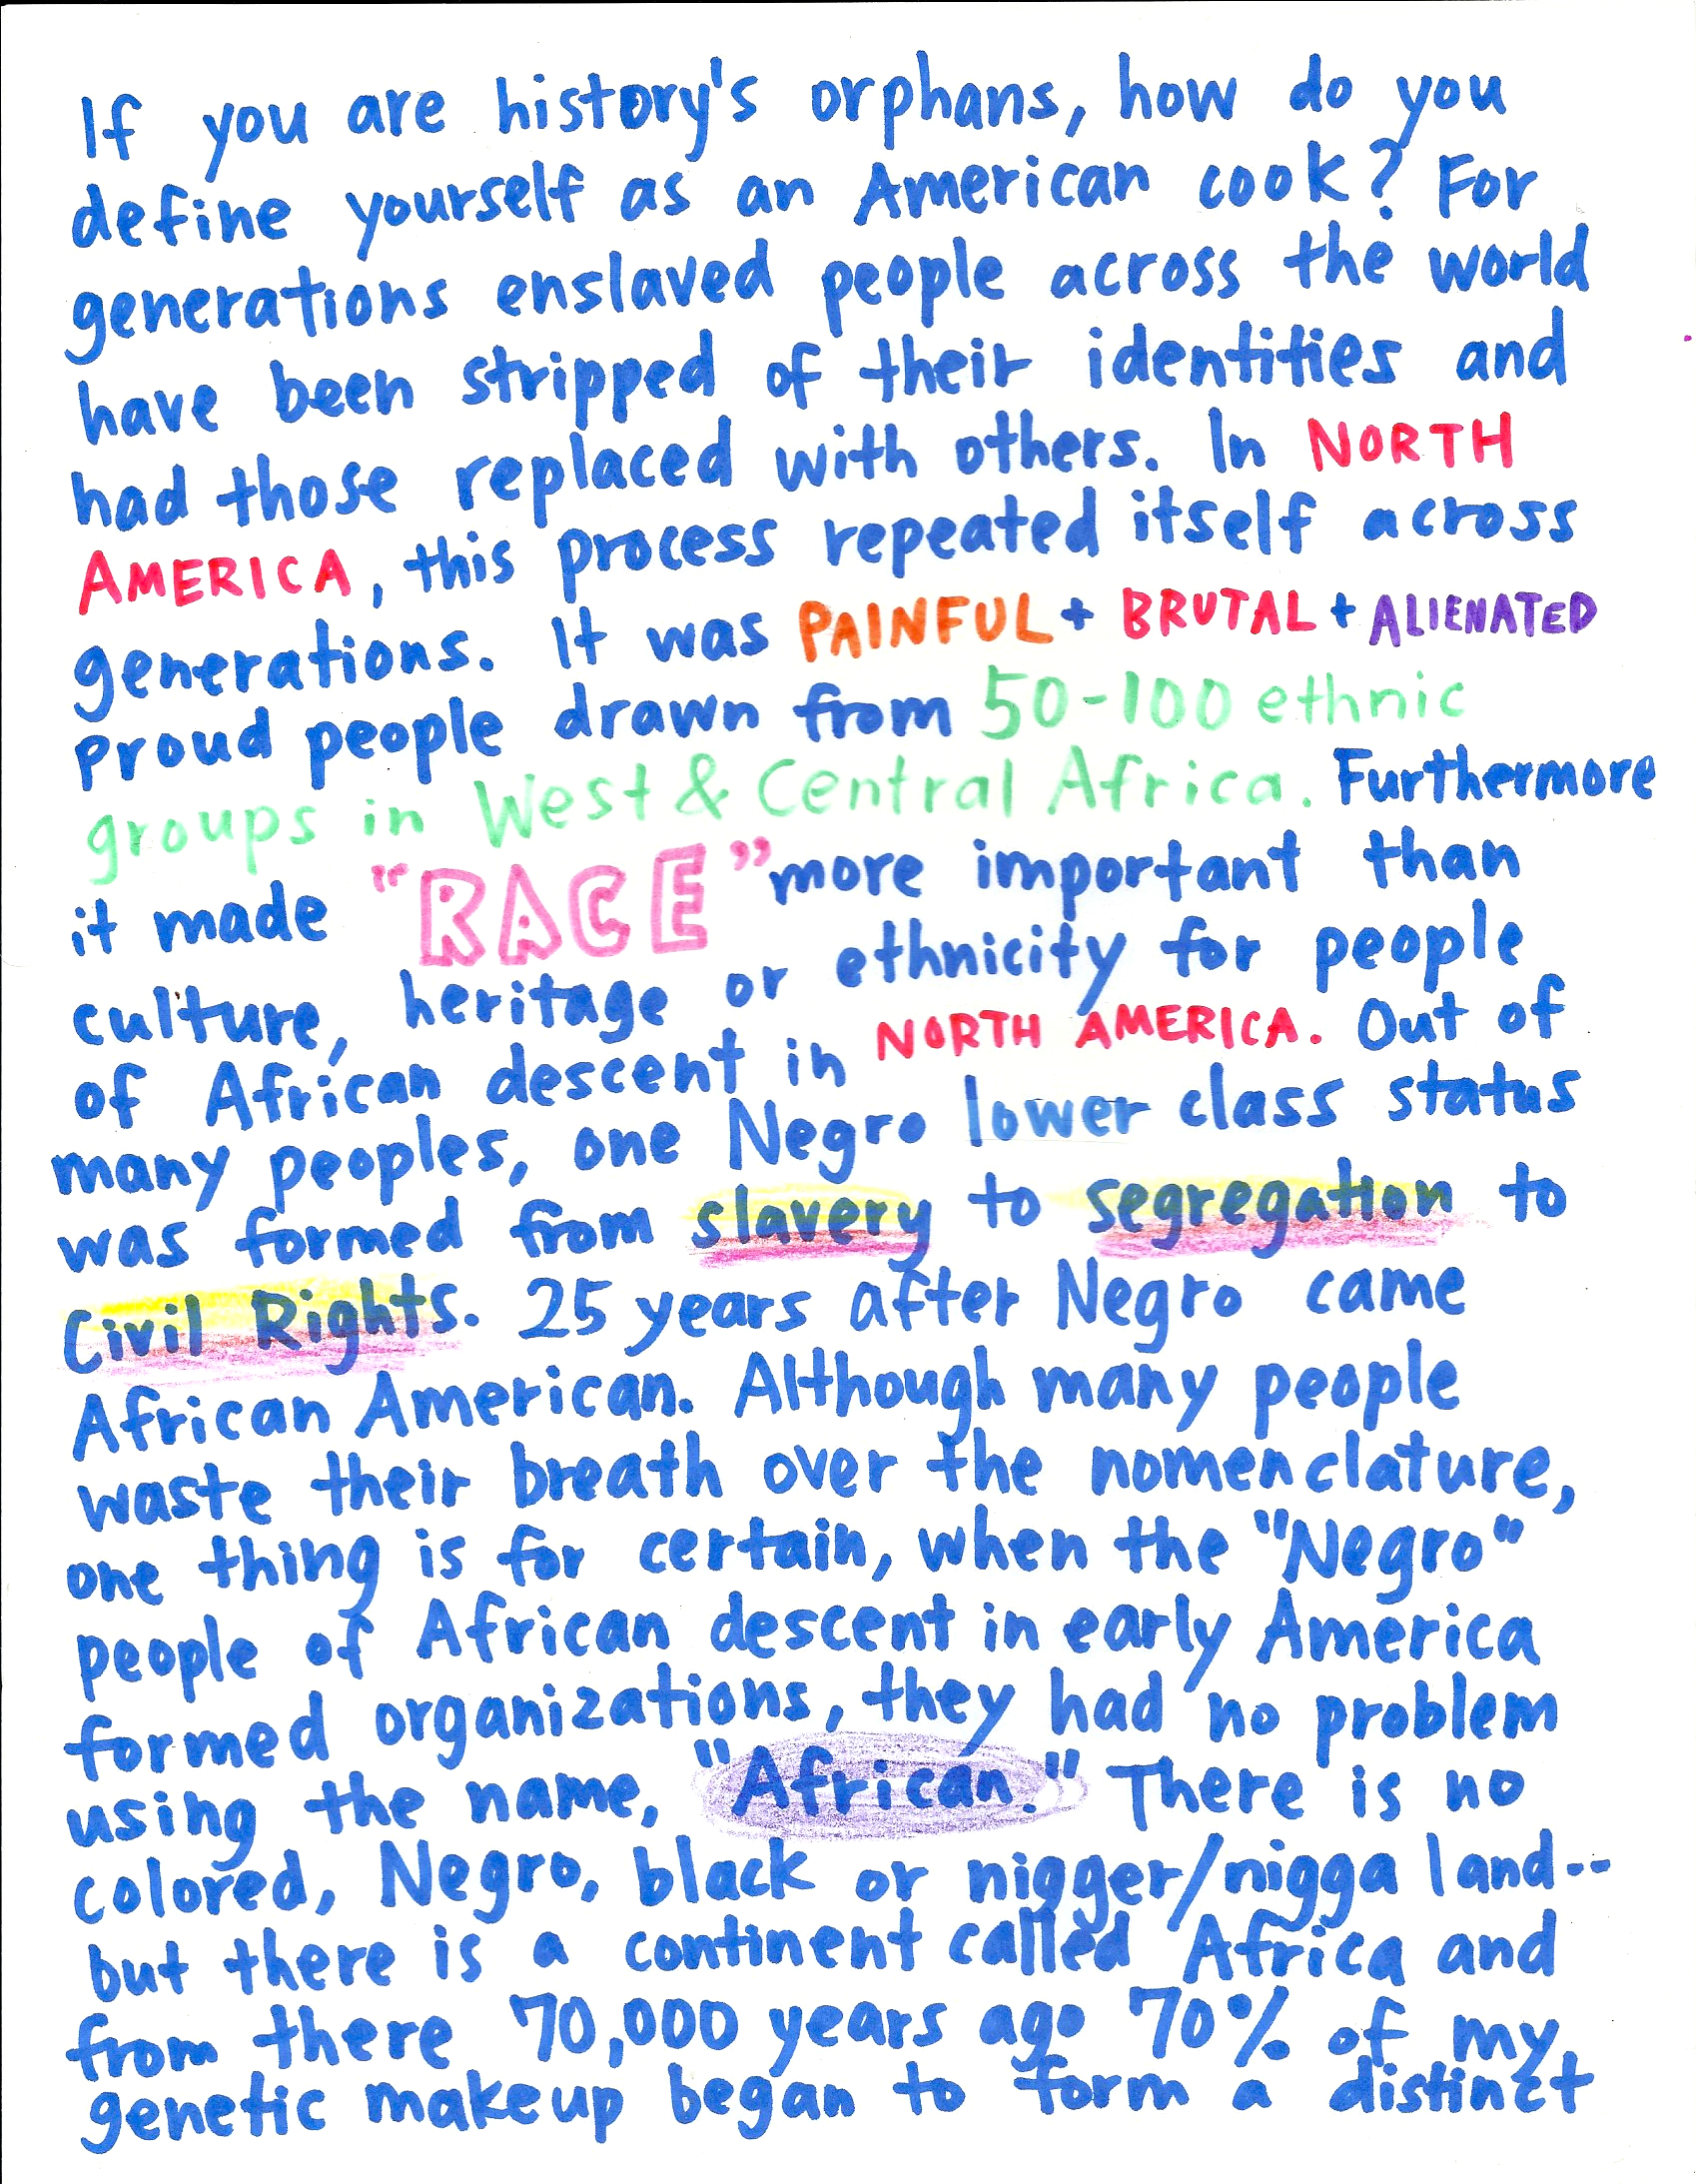 If you are history's orphans, how do you
define yourself as an American cook? For
generations enslaved people across the world
have been stripped of their identities and
had those replaced with others. In NORTH
AMERICA, this process repeated itself across
generations. It was PAINFUL + BRUTAL + ALIENATED
proud people drawn from 50-100 ethnic
groups in West & Central Africa. Furthermore
it made "RACE" more important than
culture, heritage or ethnicity for people
of African descent in NORTH AMERICA. Out of
many peoples, one Negro lower class status
was formed from slavery to segregation to
Civil Rights. 25 years after Negro came
African American. Although many people
waste their breath over the nomenclature,
one thing is for certain, when the "Negro"
people of African descent in early America
formed organizations, they had no problem
using the name, "African." There is no
colored, Negro, black or nigger/nigga land--
but there is a continent called Africa and
from there 70,000 years ago 70% of my
genetic makeup began to form a distinct